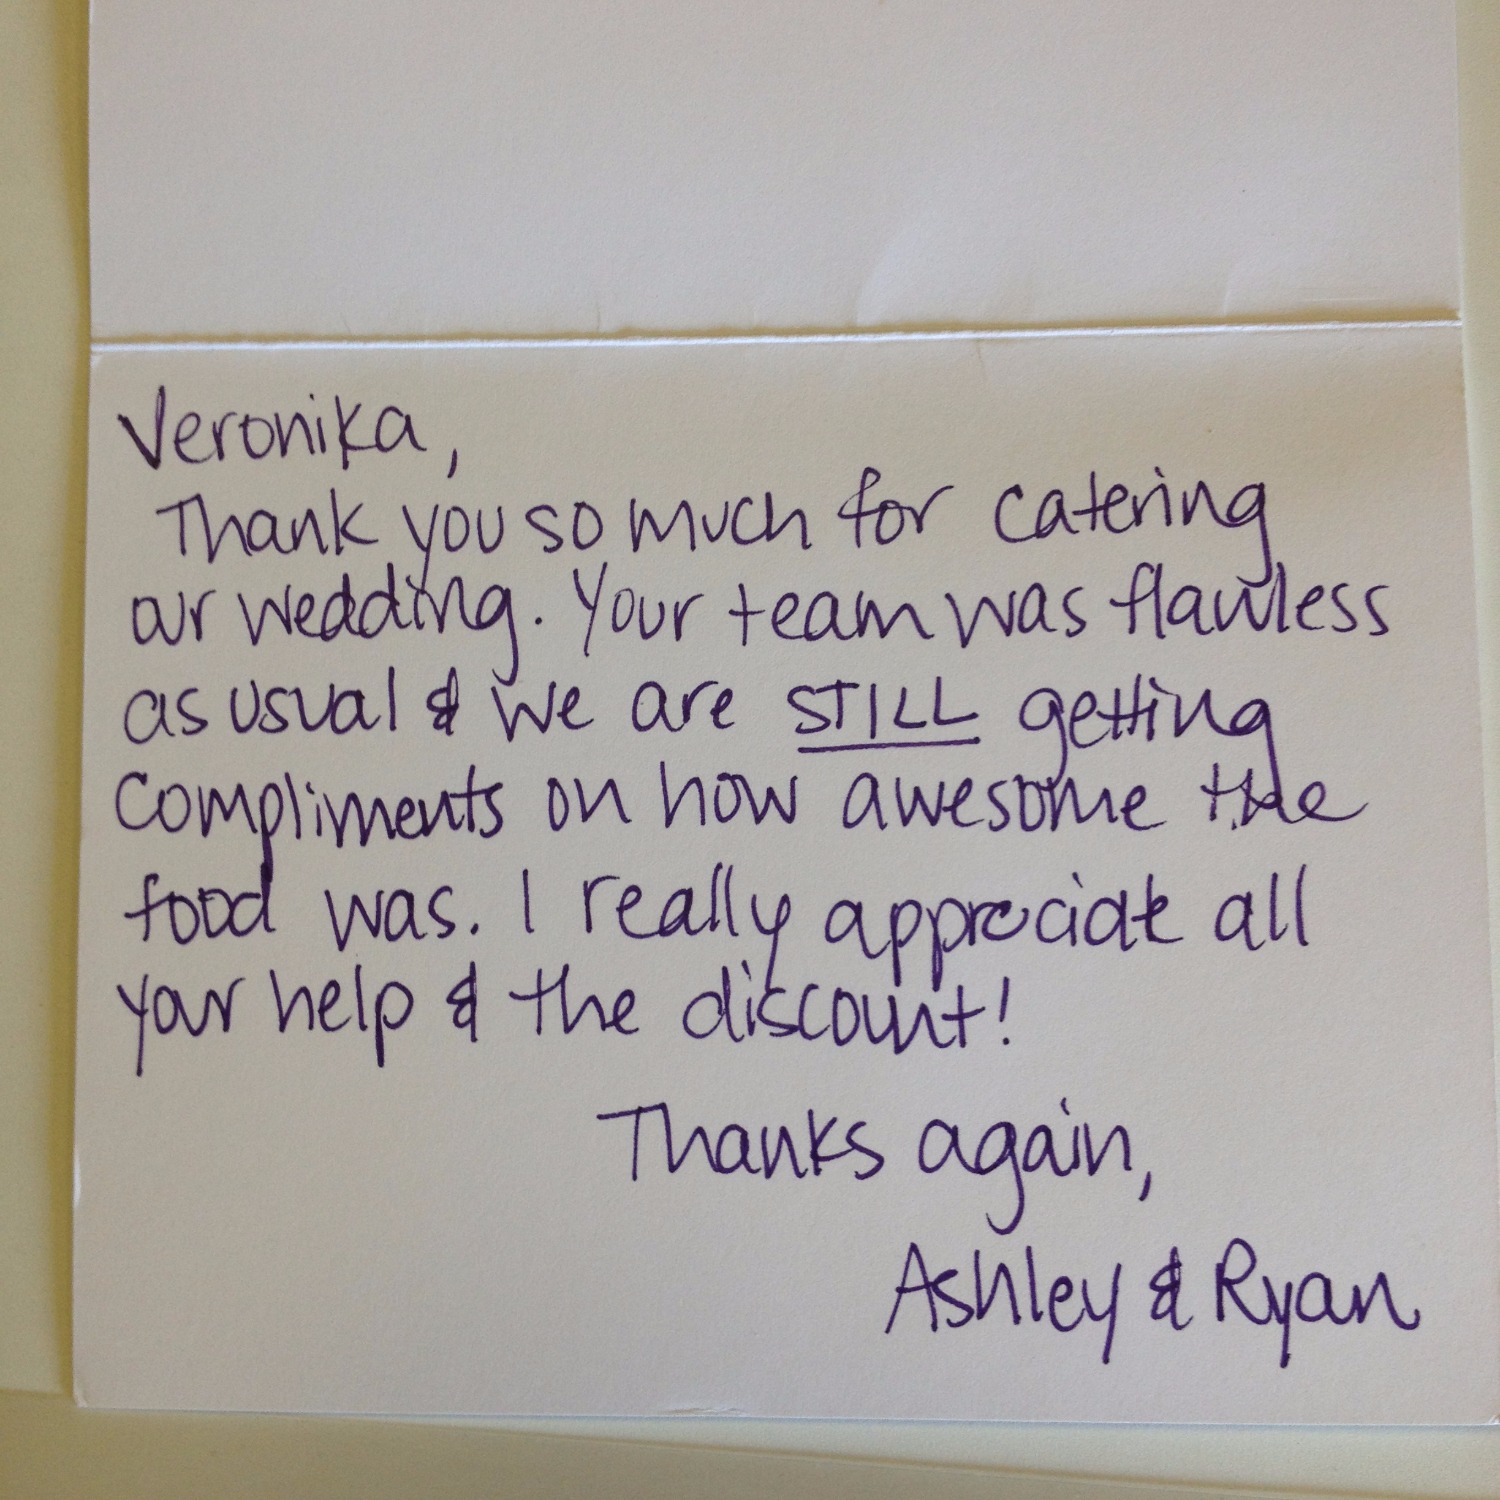 Veronika,
Thank you so much for catering
our wedding. Your team was flawless
as usual & we are STILL getting
compliments on how awesome the
food was. I really appreciate all
your help & the discount!
Thanks again,
Ashley & Ryan